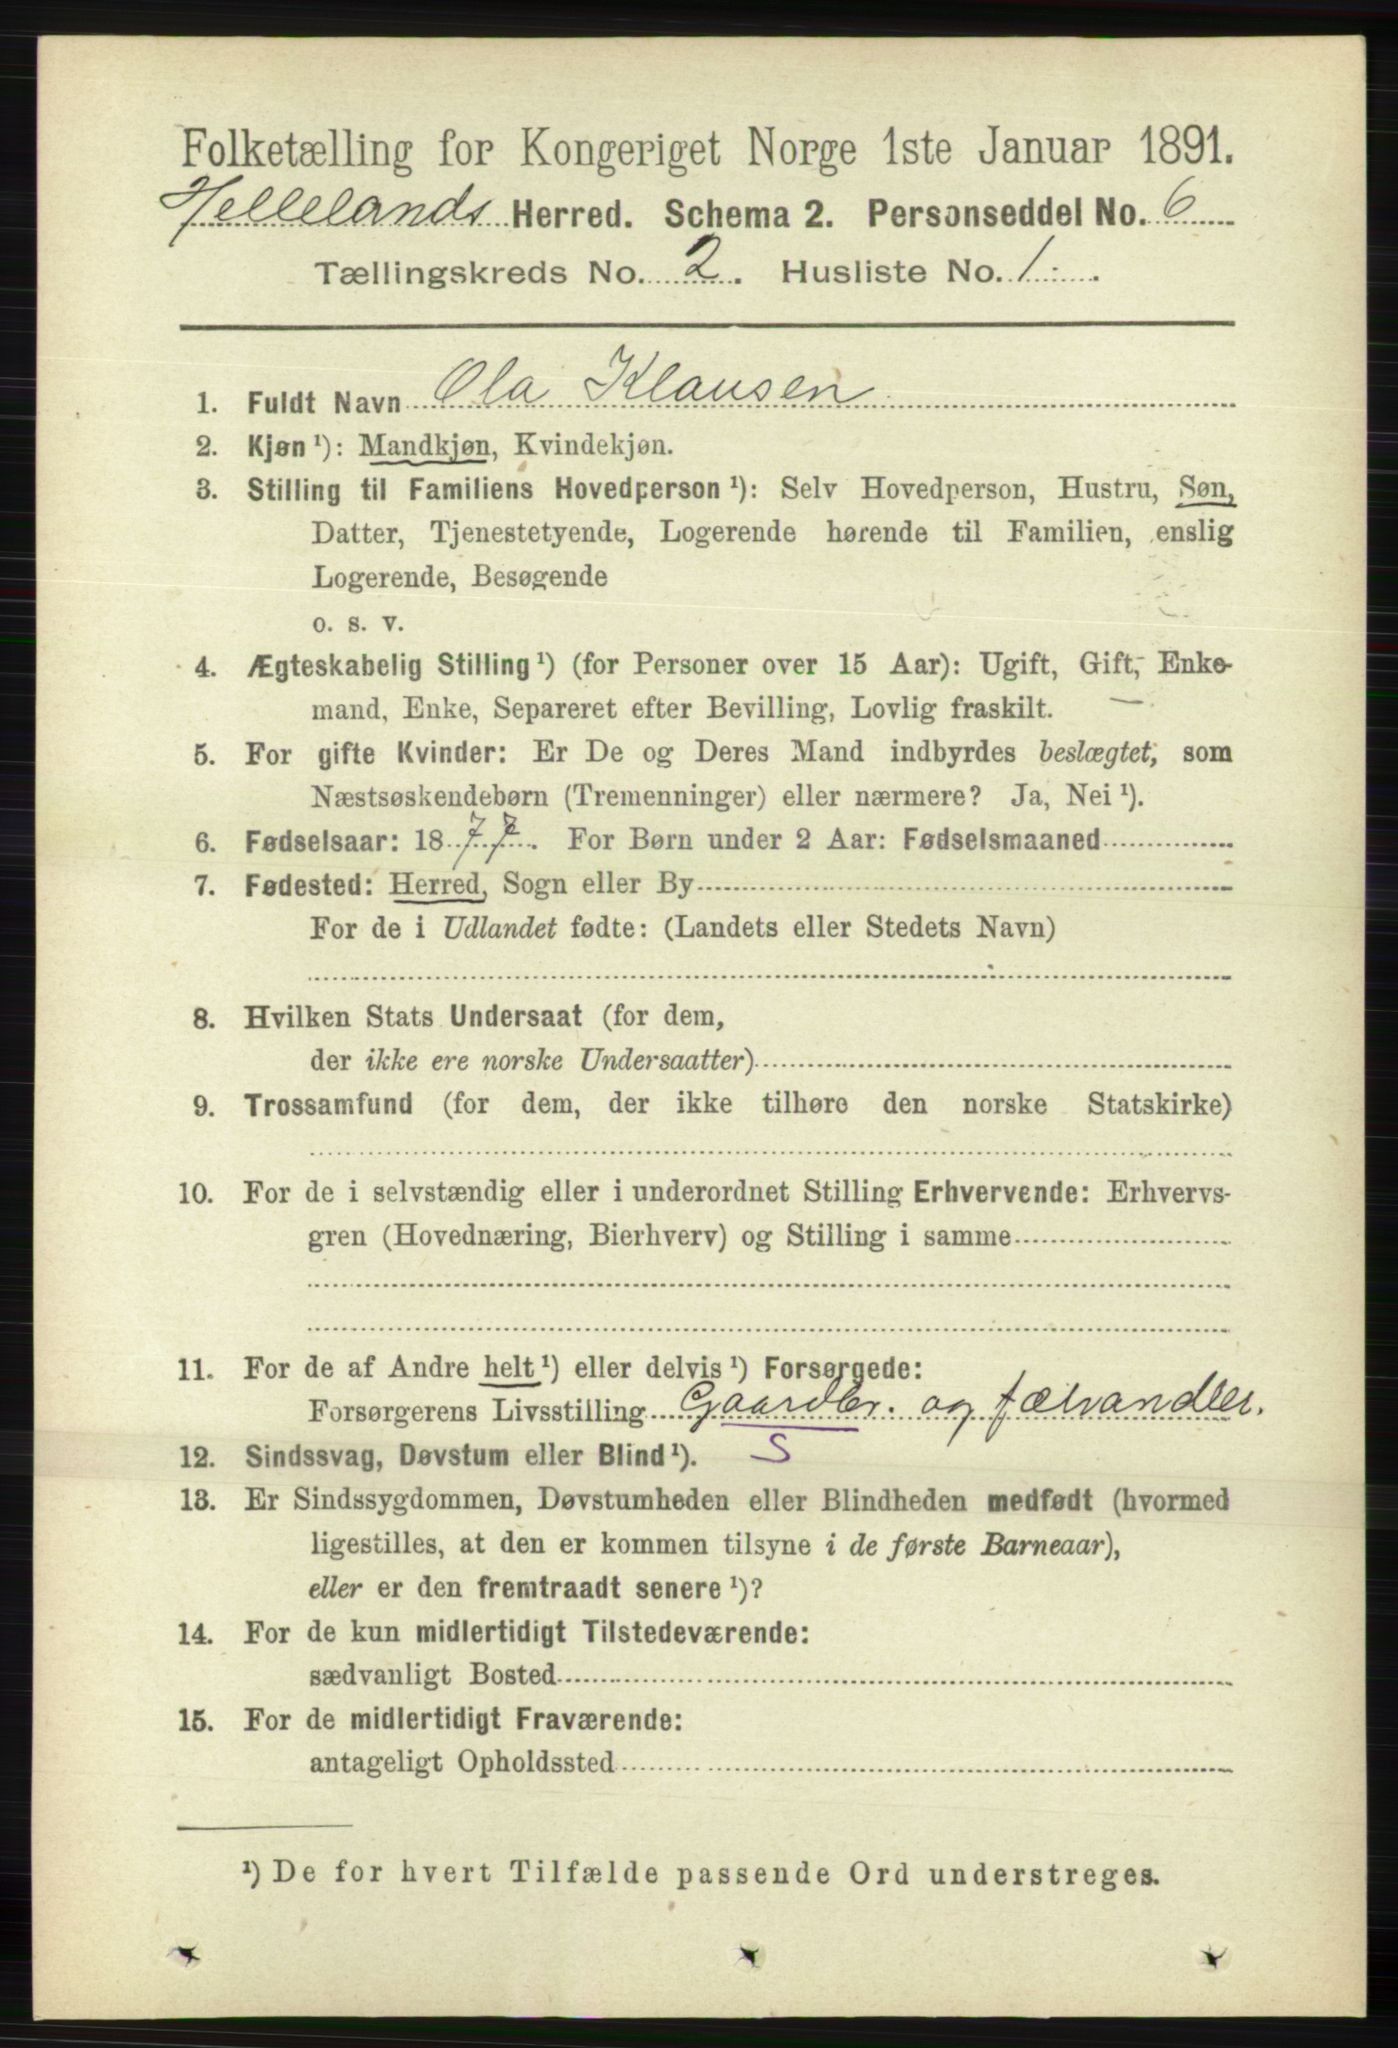 Folketælling for Kongeriget Norge 1ste Januar 1891.
Hellelands Herred. Schema 2. Personseddel No. 6
Tællingskreds No. 2. Husliste No. 1.
1. Fuldt Navn Ola Klausen
2. Kjøn ¹): Mandkjøn, Kvindekjøn.
3. Stilling til Familiens Hovedperson ¹): Selv Hovedperson, Hustru, Søn,
Datter, Tjenestetyende, Logerende hørende til Familien, enslig
Logerende, Besøgende
o. s. v.
4. Ægteskabelig Stilling ¹) (for Personer over 15 Aar): Ugift, Gift, Enke-
mand, Enke, Separeret efter Bevilling, Lovlig fraskilt.
5. For gifte Kvinder: Er De og Deres Mand indbyrdes beslægtet, som
Næstsøskendebørn (Tremenninger) eller nærmere? Ja, Nei ¹).
6. Fødselsaar: 1877. For Børn under 2 Aar: Fødselsmaaned
7. Fødested: Herred, Sogn eller By
For de i Udlandet fødte: (Landets eller Stedets Navn)
8. Hvilken Stats Undersaat (for dem,
der ikke ere norske Undersaatter)
9. Trossamfund (for dem, der ikke tilhøre den norske Statskirke)
10. For de i selvstændig eller i underordnet Stilling Erhvervende: Erhvervs-
gren (Hovednæring, Bierhverv) og Stilling i samme
11. For de af Andre helt ¹) eller delvis ¹) Forsørgede:
Forsørgerens Livsstilling Gaardbr. og fæhandler.
12. Sindssvag, Døvstum eller Blind ¹). S
13. Er Sindssygdommen, Døvstumheden eller Blindheden medfødt (hvormed
ligestilles, at den er kommen tilsyne i de første Barneaar),
eller er den fremtraadt senere ¹)?
14. For de kun midlertidigt Tilstedeværende:
sædvanligt Bosted
15. For de midlertidigt Fraværende:
antageligt Opholdssted
¹) De for hvert Tilfælde passende Ord understreges.